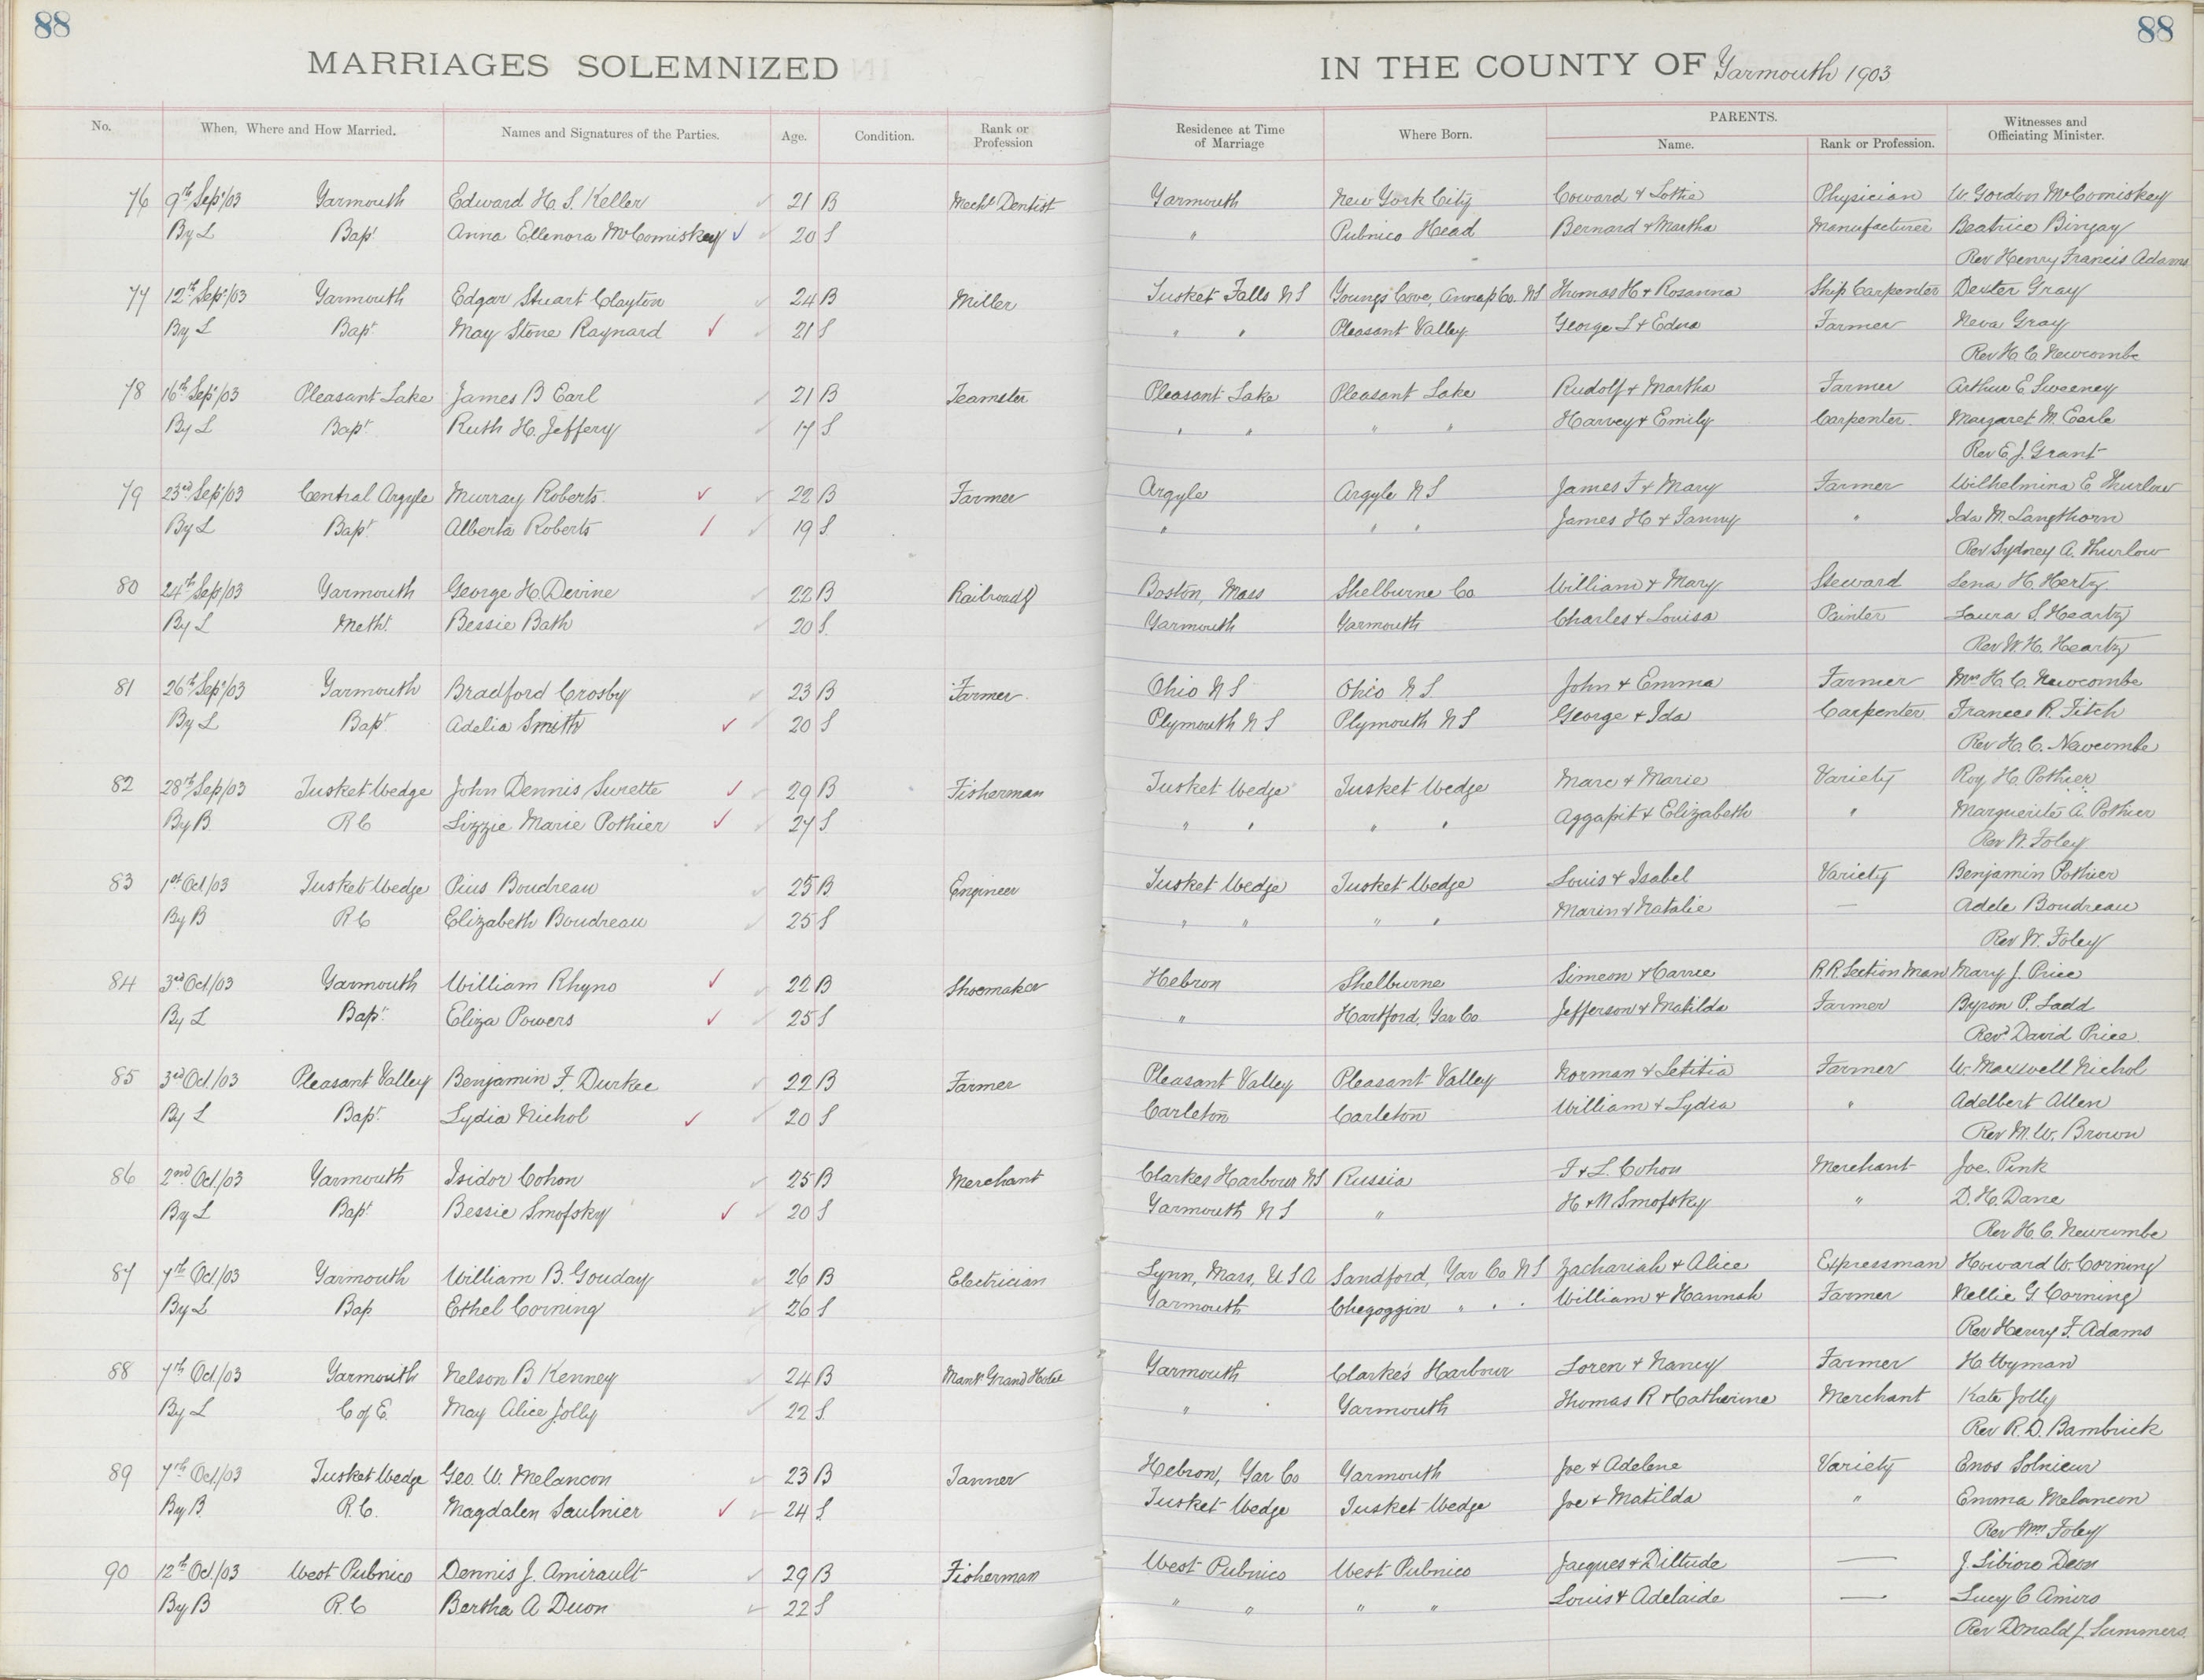 88 88
MARRIAGES SOLEMNIZED IN THE COUNTY OF Yarmouth 1903
No. When, Where and How Married. Names and Signatures of the Parties. Age. Condition. Rank or Profession Residence at Time of Marriage Where Born. PARENTS. Name. Rank or Profession. Witnesses and Officiating Minister.
76 9th Sep/03 Yarmouth Edward H. S. Keller 21 B Mechl Dentist Yarmouth New York City Coward & Lottie Physician W. Gordon McComiskey
By L Bapt Anna Ellenora McComiskey 20 S " Pubnico Head Bernard & Martha Manufacturer Beatrice Bingay
Rev Henry Francis Adams
77 12th Sep/03 Yarmouth Edgar Stuart Clayton 24 B Miller Tusket Falls N S Youngs Cove, Annap Co. NS Thomas H & Rosanna Ship Carpenter Dexter Gray
By L Bapt May Stone Raynard 21 S " " Pleasant Valley George L & Edna Farmer Neva Gray
Rev H. C. Newcombe
78 16th Sep/03 Pleasant Lake James B Earl 21 B Teamster Pleasant Lake Pleasant Lake Rudolf & Martha Farmer Arthur E. Sweeney
By L Bapt Ruth H. Jeffery 17 S " " " " Harvey & Emily Carpenter Margaret M. Earle
Rev E. J. Grant
79 23rd Sep/03 Central Argyle Murray Roberts 22 B Farmer Argyle Argyle N S James F & Mary Farmer Wilhelmina E Thurlow
By L Bapt Alberta Roberts 19 S " " " James H & Fanny " Ida M. Langthorn
Rev Sydney A. Thurlow
80 24th Sep/03 Yarmouth George H. Devine 22 B Railroadg Boston, Mass Shelburne Co William & Mary Steward Lena H. Hertz
By L Metht Bessie Bath 20 S. Yarmouth Yarmouth Charles & Louisa Painter Laura S. Heartz
Rev W. H. Heartz
81 26th Sep/03 Yarmouth Bradford Crosby 23 B Farmer Ohio N S Ohio N S John & Emma Farmer Mrs H. C. Newcombe
By L Bapt Adelia Smith 20 S Plymouth N S Plymouth N S George & Ida Carpenter Frances R. Fitch
Rev H. C. Newcombe
82 28th Sep/03 Tusket Wedge John Dennis Surette 29 B Fisherman Tusket Wedge Tusket Wedge Marc & Marie Variety Roy H. Pothier
By B. R C Lizzie Marie Pothier 27 S " " " " Aggapit & Elizabeth " Marguerite A. Pothier
Rev W. Foley
83 1st Oct/03 Tusket Wedge Pius Boudreau 25 B Engineer Tusket Wedge Tusket Wedge Louis & Isabel Variety Benjamin Pothier
By B R C Elizabeth Boudreau 25 S " " " " Marin & Natalie — Adele Boudreau
Rev W. Foley
84 3rd Oct/03 Yarmouth William Rhyno 22 B Shoemaker Hebron Shelburne Simeon & Carrie R. R. Section Man Mary J. Price
By L Bapt Eliza Powers 25 S " Hartford, Yar Co Jefferson & Matilda Farmer Byron P. Ladd
Revd David Price
85 3rd Oct/03 Pleasant Valley Benjamin F. Durkee 22 B Farmer Pleasant Valley Pleasant Valley Norman & Letitia Farmer W. Maxwell Nichol
By L Bapt Lydia Nichol 20 S Carleton Carleton William & Lydia " Adelbert Allen
Rev M. W. Brown
86 2nd Oct/03 Yarmouth Isidor Cohon 25 B Merchant Clarkes Harbour NS Russia I & L. Cohon Merchant Joe. Pink
By L Bapt Bessie Smofsky 20 S Yarmouth N S " H & N. Smofsky " D. H. Dane
Rev H. C. Newcombe
87 7th Oct/03 Yarmouth William B. Gouday 26 B Electrician Lynn, Mass, U S A Sandford, Yar Co N S Zachariah & Alice Expressman Howard W. Corning
By L Bap Ethel Corning 26 S Yarmouth Chegoggin " " " William & Hannah Farmer Nellie G. Corning
Rev Henry F. Adams
88 7th Oct/03 Yarmouth Nelson B Kenney 24 B Manr Grand Hotel Yarmouth Clarke's Harbour Loren & Nancy Farmer H. Wyman
By L C of E. May Alice Jolly 22 S. " Yarmouth Thomas R & Catherine Merchant Kate Jolly
Rev R. D. Bambrick
89 7th Oct/03 Tusket Wedge Geo. W. Melancon 23 B Tanner Hebron, Yar Co Yarmouth Joe & Adelene Variety Enos Solnieur
By B. R. C. Magdalen Saulnier 24 S Tusket Wedge Tusket Wedge Joe & Matilda " Emma Melancon
Rev Wm Foley
90 12th Oct/03 West Pubnico Dennis J. Amirault 29 B Fisherman West Pubnico West Pubnico Jacques & Diltude — J. Libiore Deon
By B R. C Bertha A Duon 22 S " " " " Louis & Adelaide — Lucy C Amiro
Rev Donald J. Summers